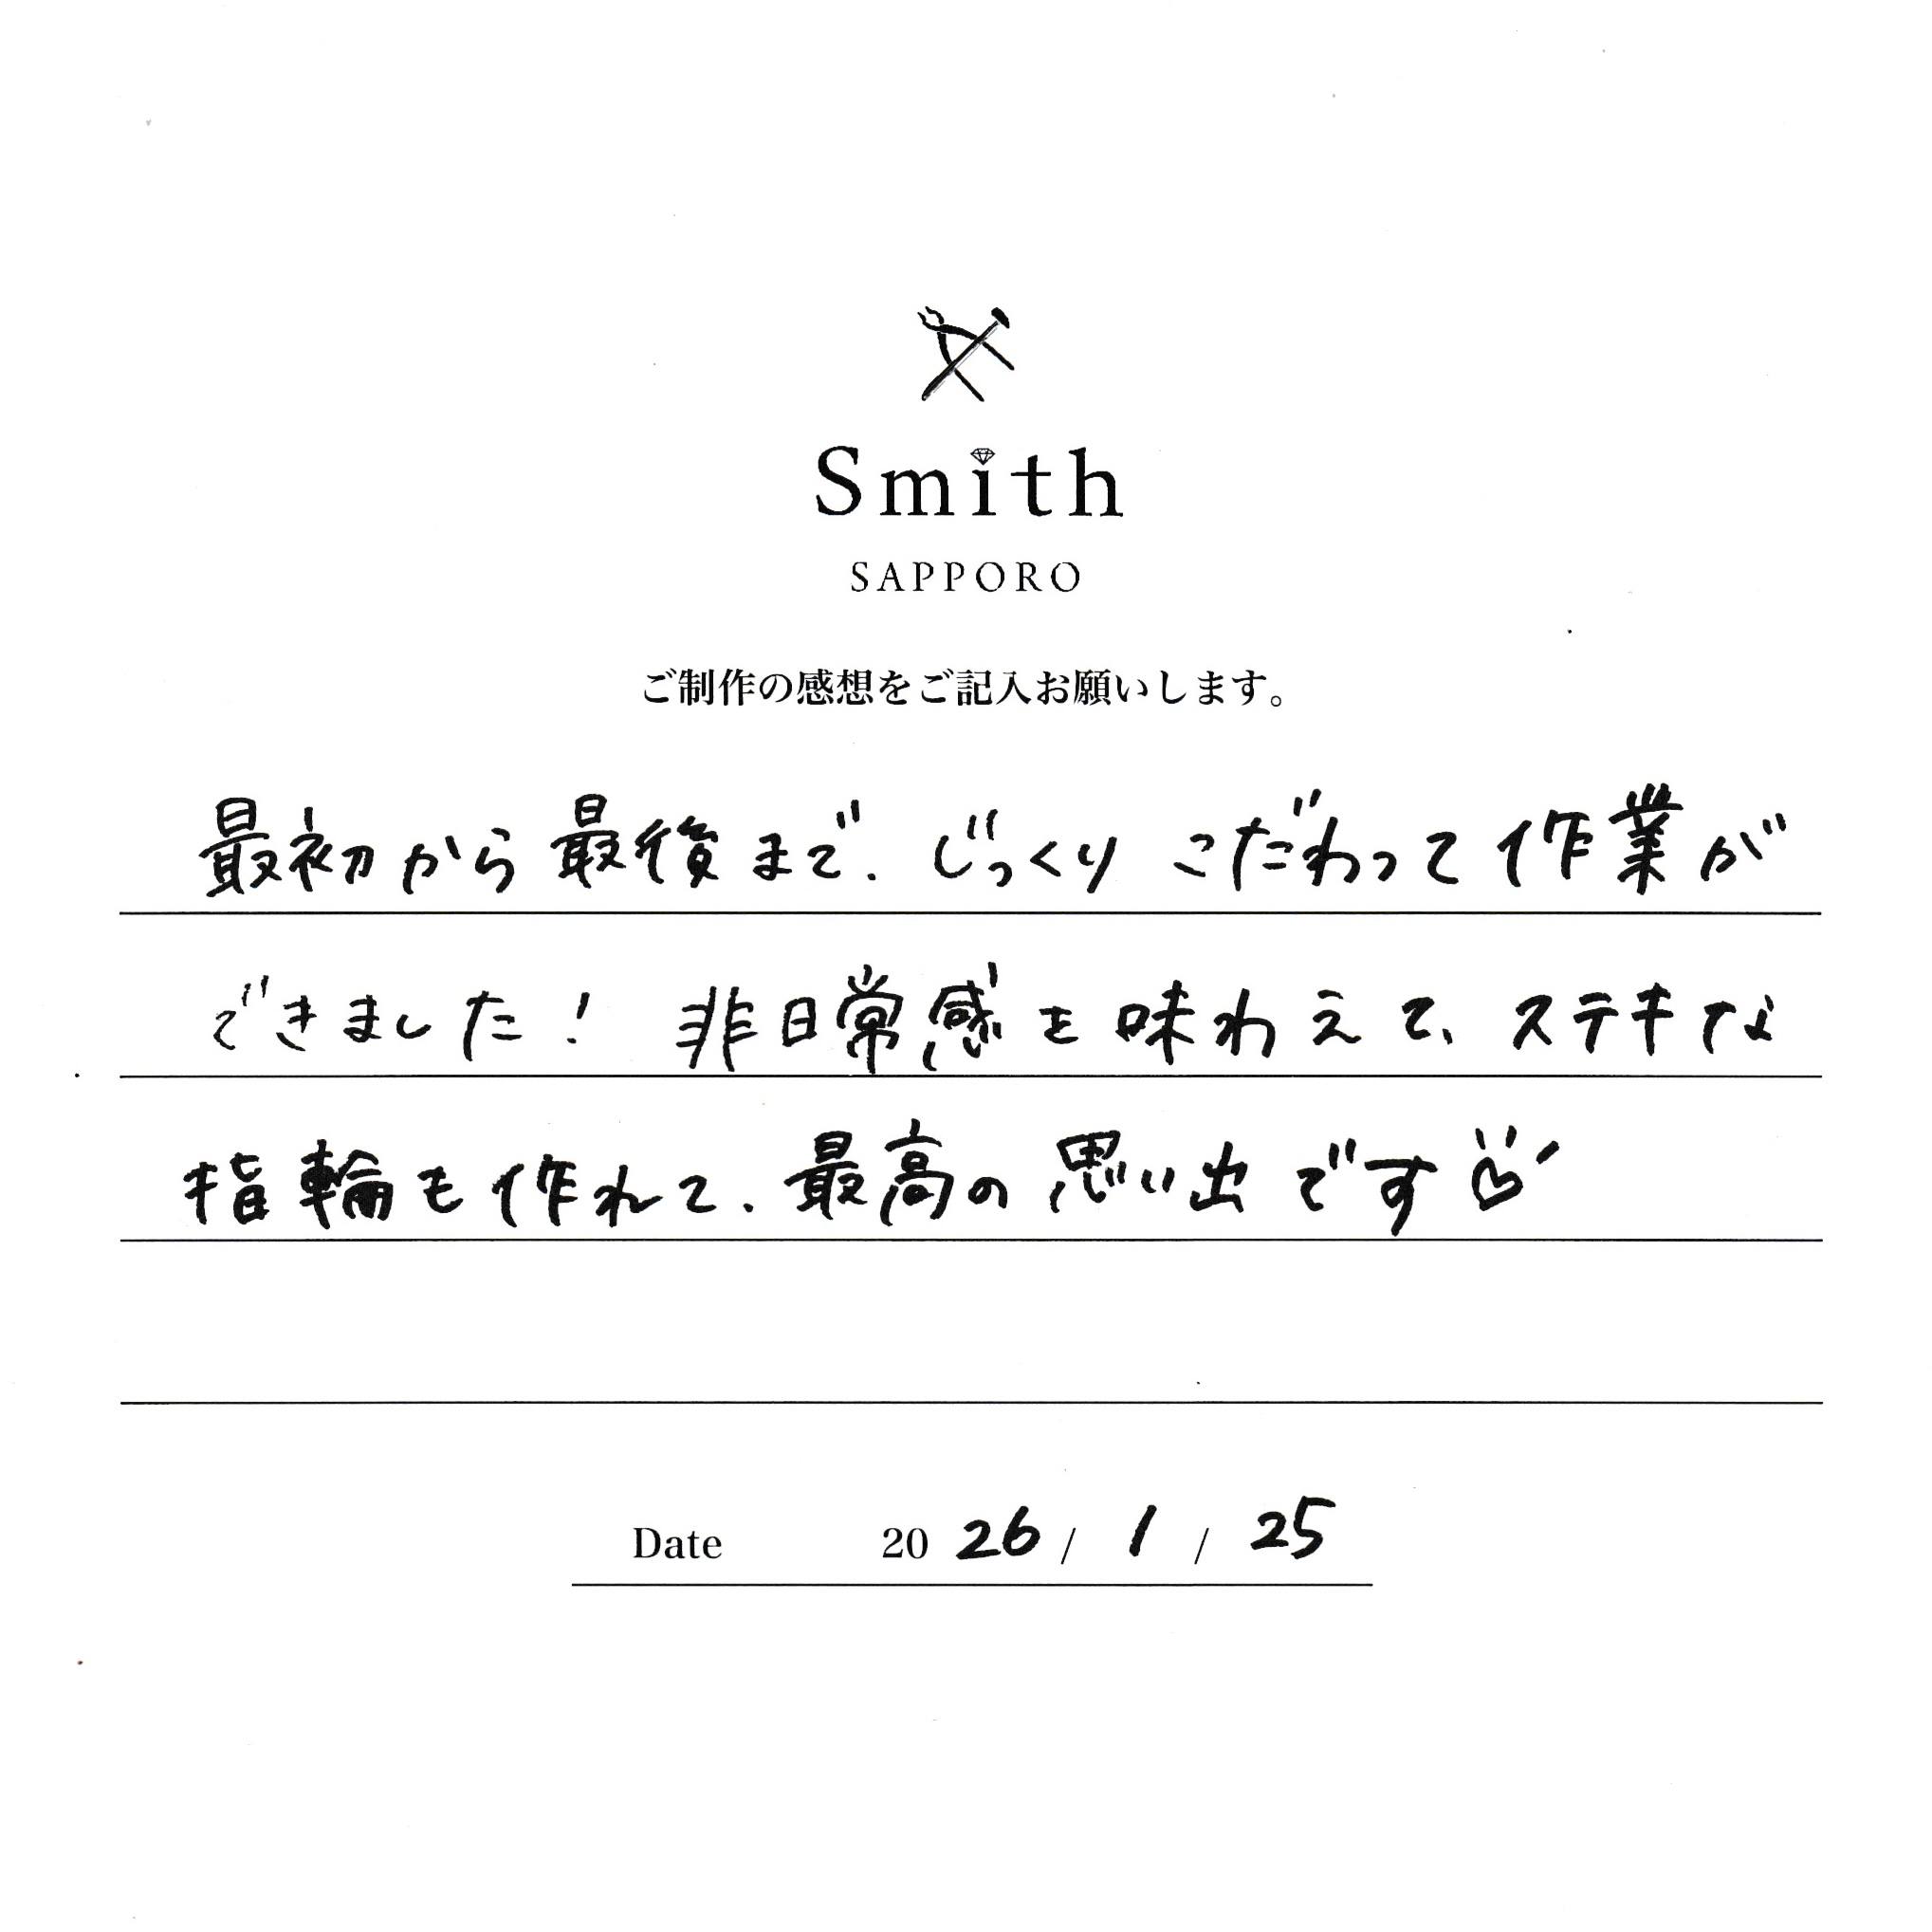 Smith
SAPPORO
ご制作の感想をご記入お願いします。
最初から最後まで、じっくりこだわって作業が
できました! 非日常感を味わえて、ステキな
指輪も作れて、最高の思い出です
Date 2026/1/25